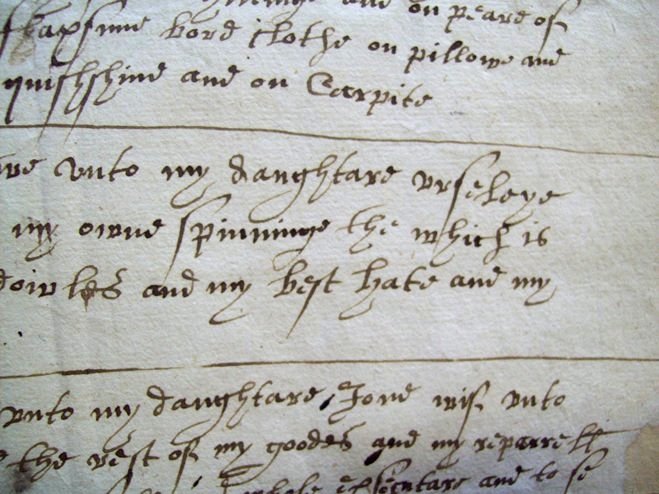 and on peare of
bord clothe on pillowe and
quishshind and on Carpite
unto my daughtare urseleye
my owne spinninge the which is
and my best hate and my
unto my daughtare Jone wif unto
the rest of my goodes and my reparrell
and to se